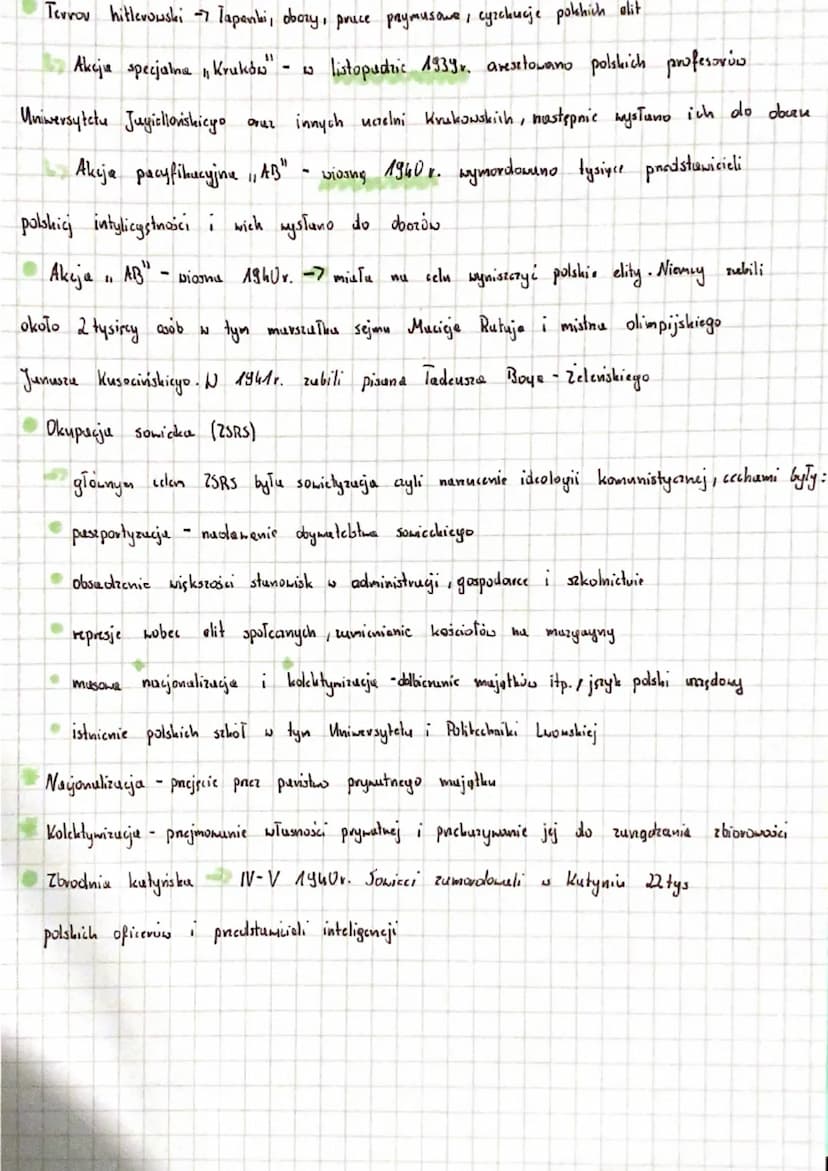 Terror hitlerowski → łapanki, obozy, prace przymusowe, egzekucje polskich elit
↳ Akcja specjalna „Kraków" - w listopadzie 1939r. aresztowano polskich profesorów
Uniwersytetu Jagiellońskiego oraz innych uczelni krakowskich, następnie wysłano ich do obozu
↳ Akcja pacyfikacyjna „AB" - wiosną 1940r. wymordowano tysiące przedstawicieli
polskiej inteligentności i wielu wysłano do obozów
Akcja „AB" - wiosna 1940r. → miała na celu wyniszczyć polskie elity. Niemcy zabili
około 2 tysięcy osób w tym marszałka sejmu Macieja Rataja i mistrza olimpijskiego
Janusza Kusocińskiego. W 1941r. zabili pisarza Tadeusza Boya-Żeleńskiego
Okupacja sowiecka (ZSRS)
→ głównym celem ZSRS była sowietyzacja czyli narzucenie ideologii komunistycznej, cechami były:
paszportyzacja - nadawanie obywatelstwa sowieckiego
obsadzenie większości stanowisk w administracji, gospodarce i szkolnictwie
represje wobec elit społecznych, kościołów na
masowa nacjonalizacja i kolektywizacja - odbieranie majątków itp. / język polski urzędowy
istnienie polskich szkół w tym Uniwersytetu i Politechniki Lwowskiej
Nacjonalizacja - przejęcie przez państwo prywatnego majątku
Kolektywizacja - przejmowanie własności prywatnej i przekazywanie jej do zarządzania zbiorowości
Zbrodnia katyńska → IV-V 1940r. Sowieci zamordowali w Katyniu 22 tys
polskich oficerów i przedstawicieli inteligencji